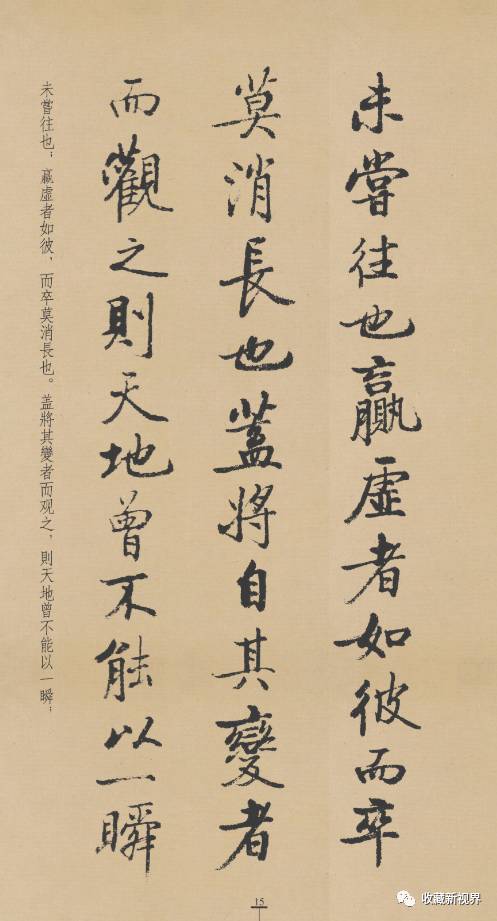 未嘗往也贏虛者如彼而卒
莫消長也蓋將自其變者
而觀之則天地曾不能以一瞬
未嘗往也；贏虛者如彼，而卒莫消長也。蓋將其變者而观之，則天地曾不能以一瞬；
15
收藏新视界